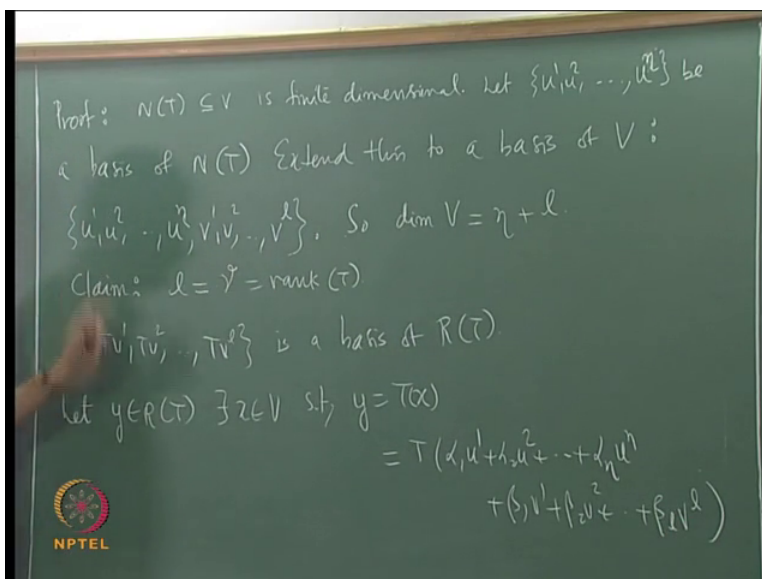 Proof: N(T) ⊆ V is finite dimensional. Let {u¹, u², ..., u^η} be
a basis of N(T) Extend this to a basis of V:
{u¹, u², .., u^η, v¹, v², .., v^l}. So dim V = η + l.
Claim: l = r = rank(T)
Tv¹, Tv², .., Tv^l} is a basis of R(T).
Let y ∈ R(T) ∃ x ∈ V s.t, y = T(x)
= T(α₁u¹ + α₂u² + ... + α_ηu^η
+ β₁v¹ + β₂v² + .. + β_lv^l)
NPTEL